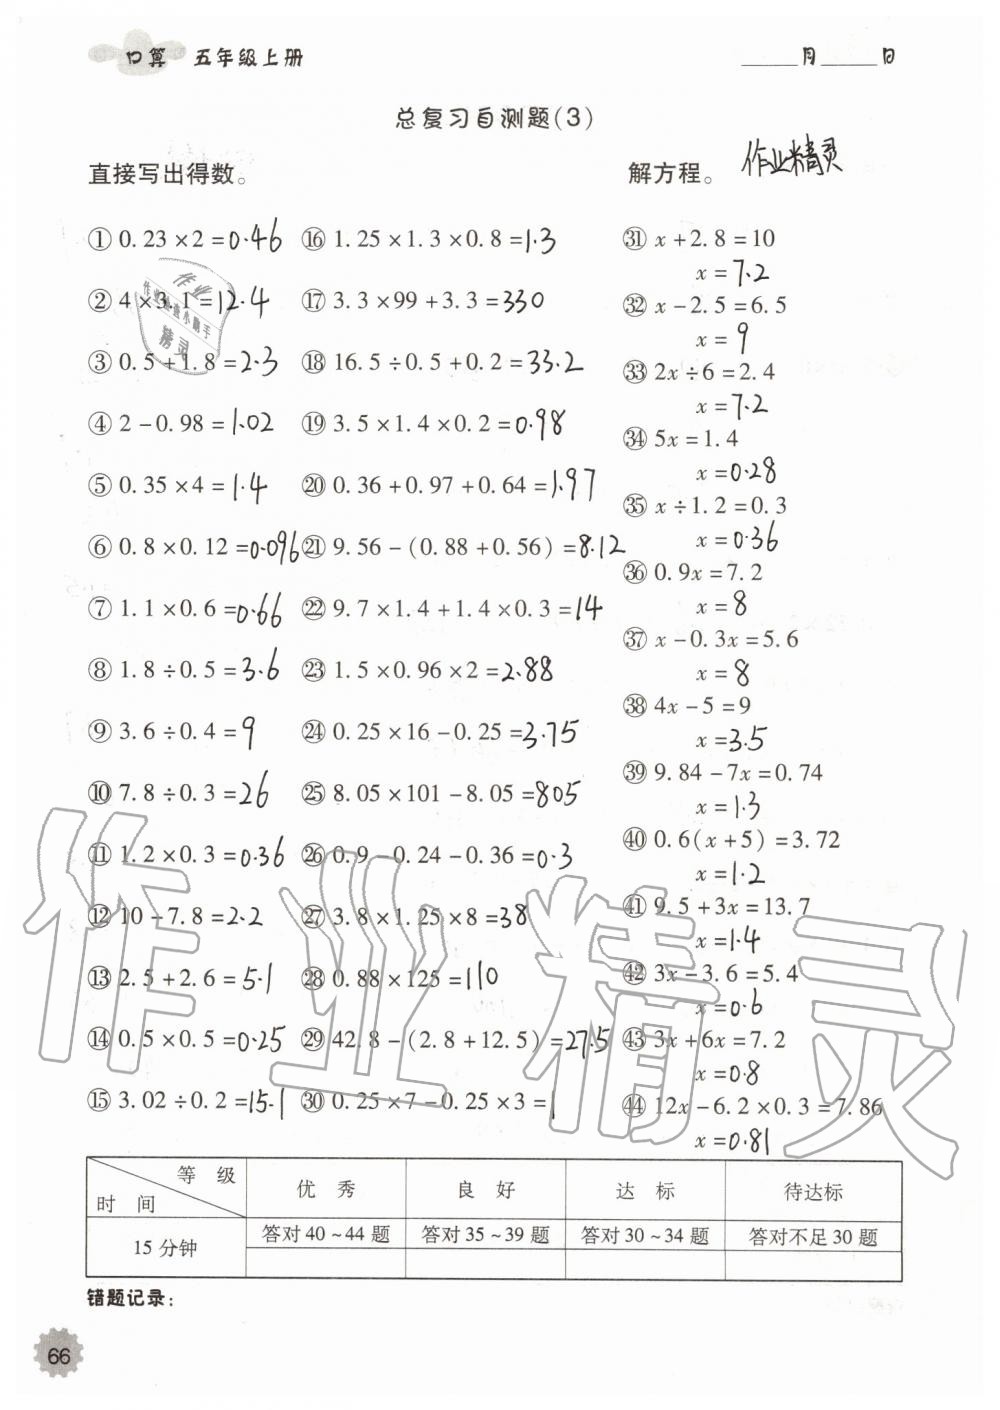 口算 五年级上册
____月____日
总复习自测题(3)
直接写出得数。
① 0.23×2=0.46
② 4×3.1=12.4
③ 0.5+1.8=2.3
④ 2-0.98=1.02
⑤ 0.35×4=1.4
⑥ 0.8×0.12=0.096
⑦ 1.1×0.6=0.66
⑧ 1.8÷0.5=3.6
⑨ 3.6÷0.4=9
⑩ 7.8÷0.3=26
⑪ 1.2×0.3=0.36
⑫ 10-7.8=2.2
⑬ 2.5+2.6=5.1
⑭ 0.5×0.5=0.25
⑮ 3.02÷0.2=15.1
⑯ 1.25×1.3×0.8=1.3
⑰ 3.3×99+3.3=330
⑱ 16.5÷0.5+0.2=33.2
⑲ 3.5×1.4×0.2=0.98
⑳ 0.36+0.97+0.64=1.97
㉑ 9.56-(0.88+0.56)=8.12
㉒ 9.7×1.4+1.4×0.3=14
㉓ 1.5×0.96×2=2.88
㉔ 0.25×16-0.25=3.75
㉕ 8.05×101-8.05=805
㉖ 0.9-0.24-0.36=0.3
㉗ 3.8×1.25×8=38
㉘ 0.88×125=110
㉙ 42.8-(2.8+12.5)=27.5
㉚ 0.25×7-0.25×3=1
解方程。 作业精灵
㉛ x+2.8=10
x=7.2
㉜ x-2.5=6.5
x=9
㉝ 2x÷6=2.4
x=7.2
㉞ 5x=1.4
x=0.28
㉟ x÷1.2=0.3
x=0.36
㊱ 0.9x=7.2
x=8
㊲ x-0.3x=5.6
x=8
㊳ 4x-5=9
x=3.5
㊴ 9.84-7x=0.74
x=1.3
㊵ 0.6(x+5)=3.72
x=1.2
㊶ 9.5+3x=13.7
x=1.4
㊷ 3x-3.6=5.4
x=0.6
㊸ 3x+6x=7.2
x=0.8
㊹ 12x-6.2×0.3=7.86
x=0.81
作业精灵
等 级
时 间
优 秀
良 好
达 标
待达标
15分钟
答对40~44题
答对35~39题
答对30~34题
答对不足30题
错题记录：
66